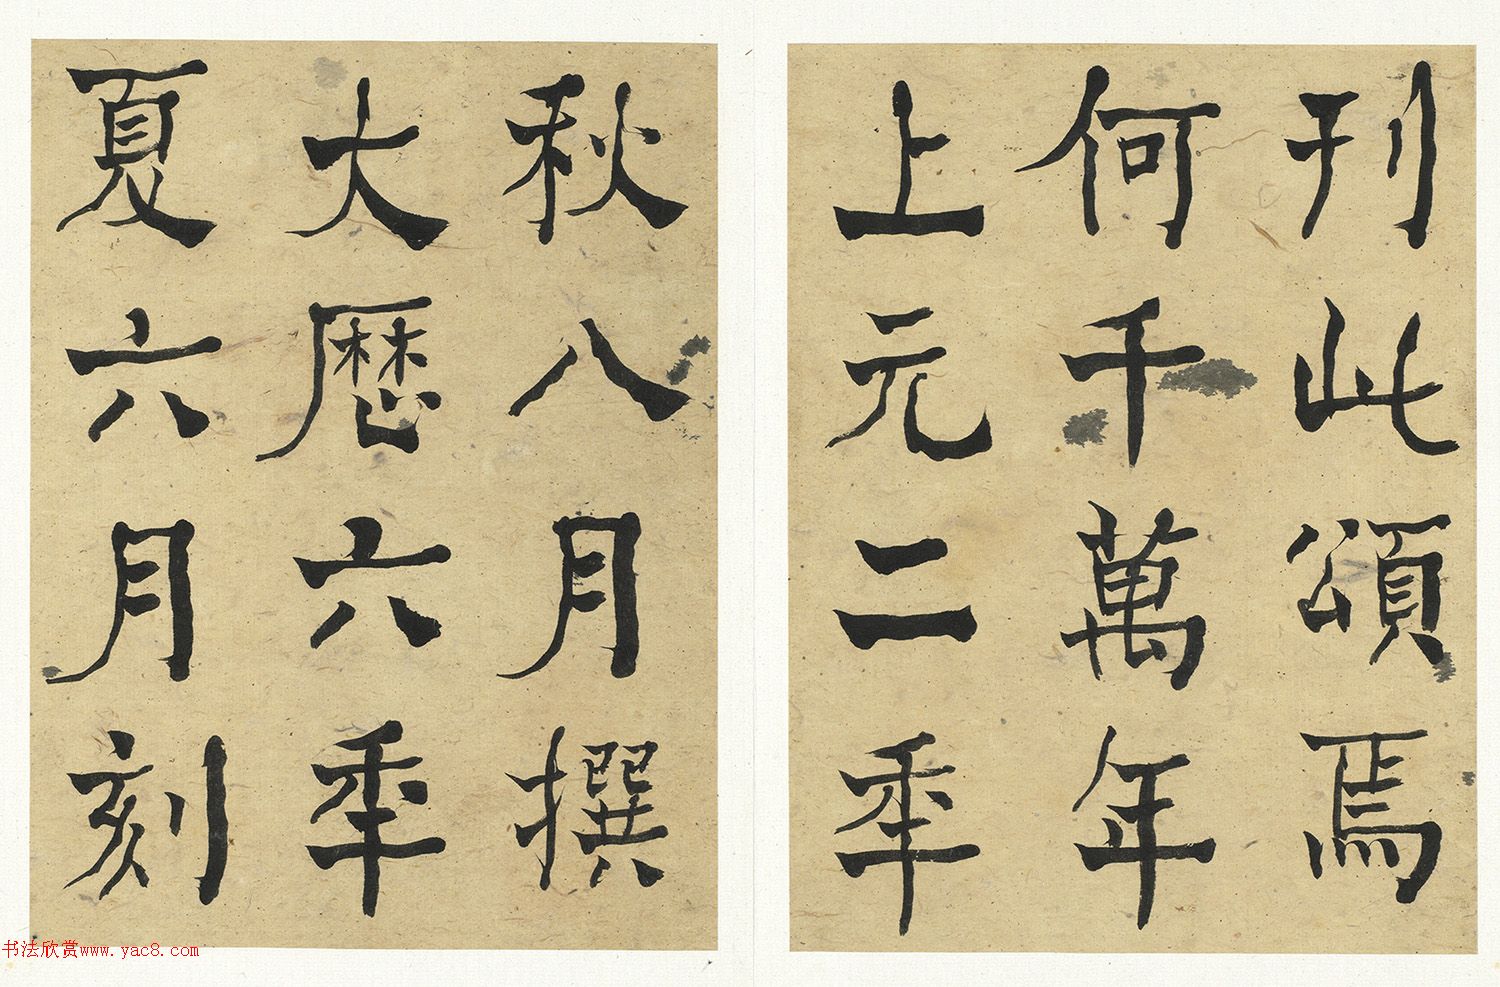 刊此頌焉
何千萬年
上元二秊
秋八月撰
大曆六秊
夏六月刻
书法欣赏www.yac8.com